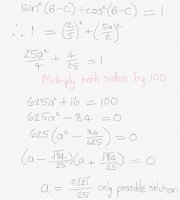 sin²(B-C) + cos²(B-C) = 1
∴ 1 = (2/5)² + (5a/2)²
25a²/4 + 4/25 = 1
Multiply both sides by 100
625a² + 16 = 100
625a² - 84 = 0
625(a² - 84/625) = 0
(a - √84/25)(a + √84/25) = 0
a = 2√21/25 only possible solution